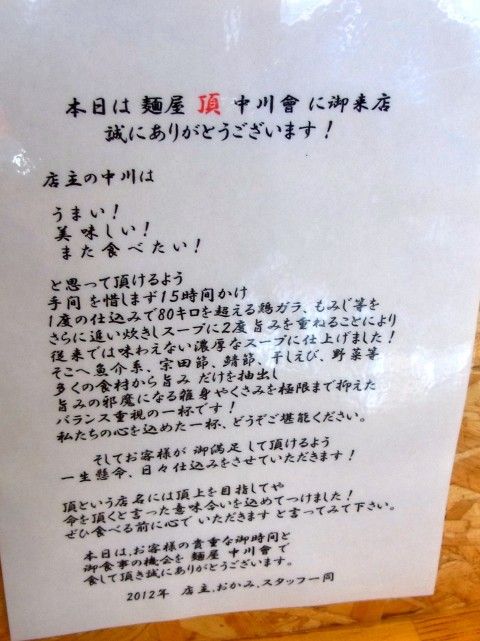 本日は 麺屋 頂 中川會 に御来店
誠にありがとうございます！
店主の中川は
うまい！
美味しい！
また食べたい！
と思って頂けるよう
手間を惜しまず15時間かけ
1度の仕込みで80キロを超える鶏ガラ、もみじ等を
さらに追い炊きしスープに2度旨みを重ねることにより
従来では味わえない濃厚なスープに仕上げました！
そこへ魚介系、宗田節、鯖節、干しえび、野菜等
多くの食材から旨みだけを抽出し
旨みの邪魔になる雑身やくさみを極限まで抑えた
バランス重視の一杯です！
私たちの心を込めた一杯、どうぞご堪能ください。
そしてお客様が御満足して頂けるよう
一生懸命、日々仕込みをさせていただきます！
頂という店名には頂上を目指してや
命を頂くと言った意味合いを込めてつけました！
ぜひ食べる前に心でいただきますと言ってみて下さい。
本日は、お客様の貴重な御時間と
御食事の機会を麺屋 中川會で
食して頂き誠にありがとうございます。
2012年 店主、おかみ、スタッフ一同